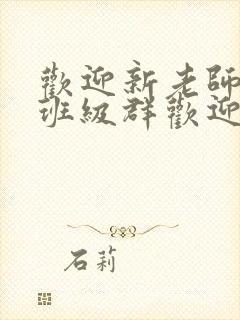 歡迎新老師
班級群歡迎
石莉